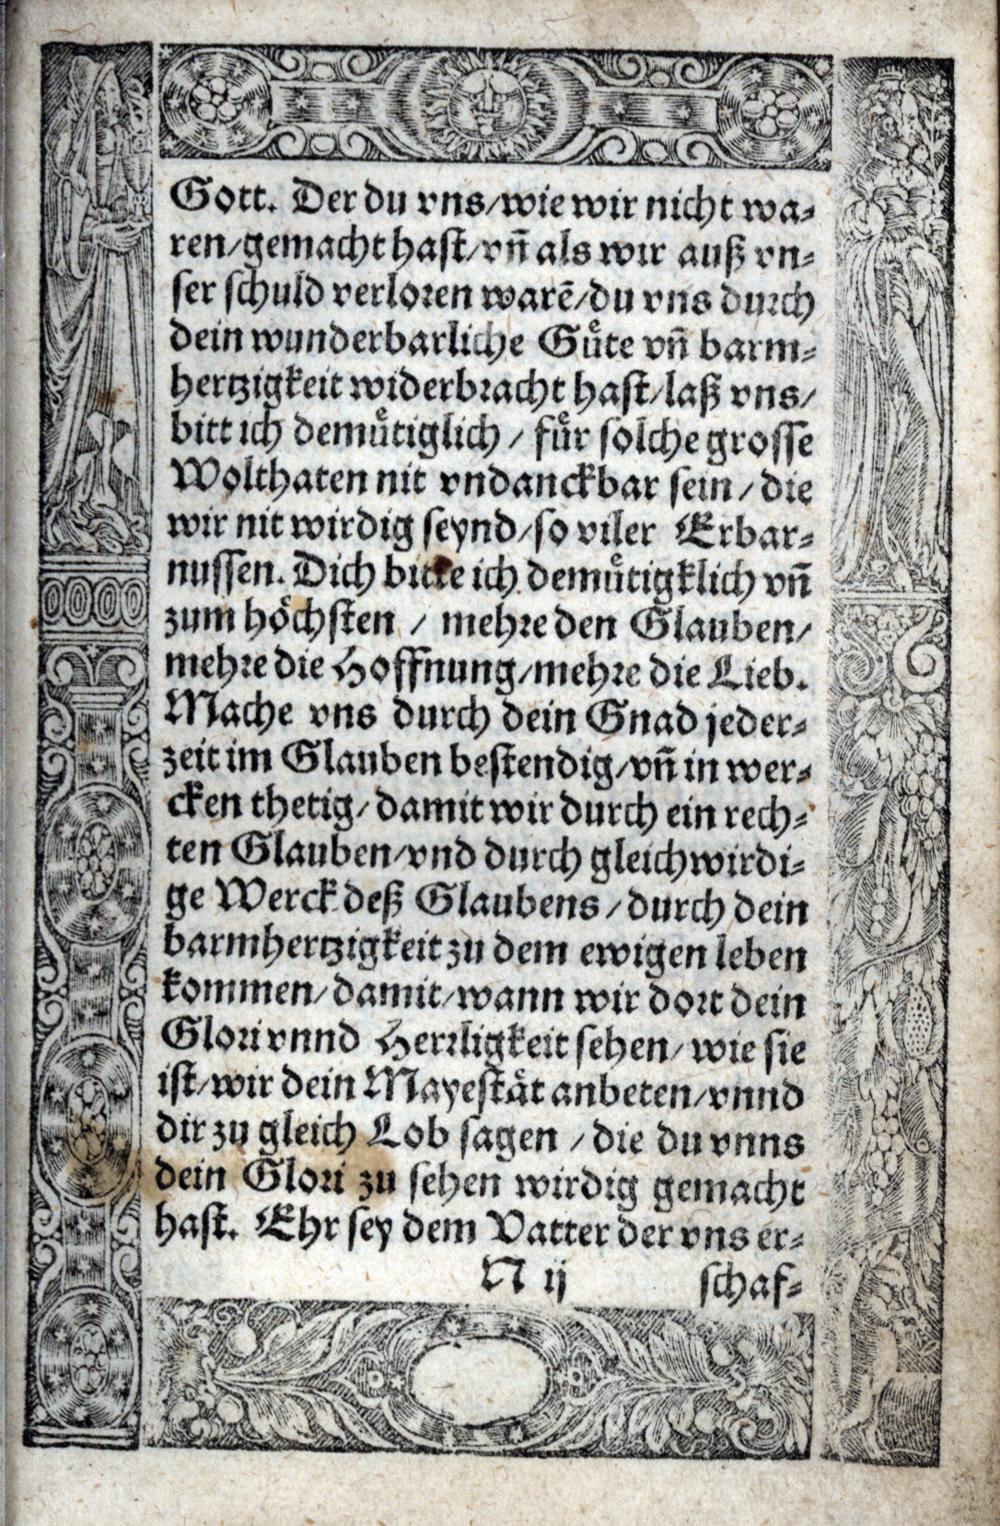 Gott. Der du vns/wie wir nicht wa⸗
ren/gemacht hast/vn̄ als wir auß vn⸗
ser schuld verloren warē/du vns durch
dein wunderbarliche Guͤte vn̄ barm⸗
hertzigkeit widerbracht hast/laß vns/
bitt ich demuͤtiglich / fuͤr solche grosse
Wolthaten nit vndanckbar sein / die
wir nit wirdig seynd/so viler Erbar⸗
nussen. Dich bitte ich demuͤtigklich vn̄
zum hoͤchsten / mehre den Glauben/
mehre die Hoffnung/mehre die Lieb.
Mache vns durch dein Gnad jeder⸗
zeit im Glauben bestendig/vn̄ in wer⸗
cken thetig/damit wir durch ein rech⸗
ten Glauben/vnd durch gleichwirdi⸗
ge Werck deß Glaubens / durch dein
barmhertzigkeit zu dem ewigen leben
kommen/damit/wann wir dort dein
Glori vnnd Herrligkeit sehen/wie sie
ist/wir dein Mayestaͤt anbeten/vnnd
dir zu gleich Lob sagen / die du vnns
dein Glori zu sehen wirdig gemacht
hast. Ehr sey dem Vatter der vns er⸗
N ij schaf⸗